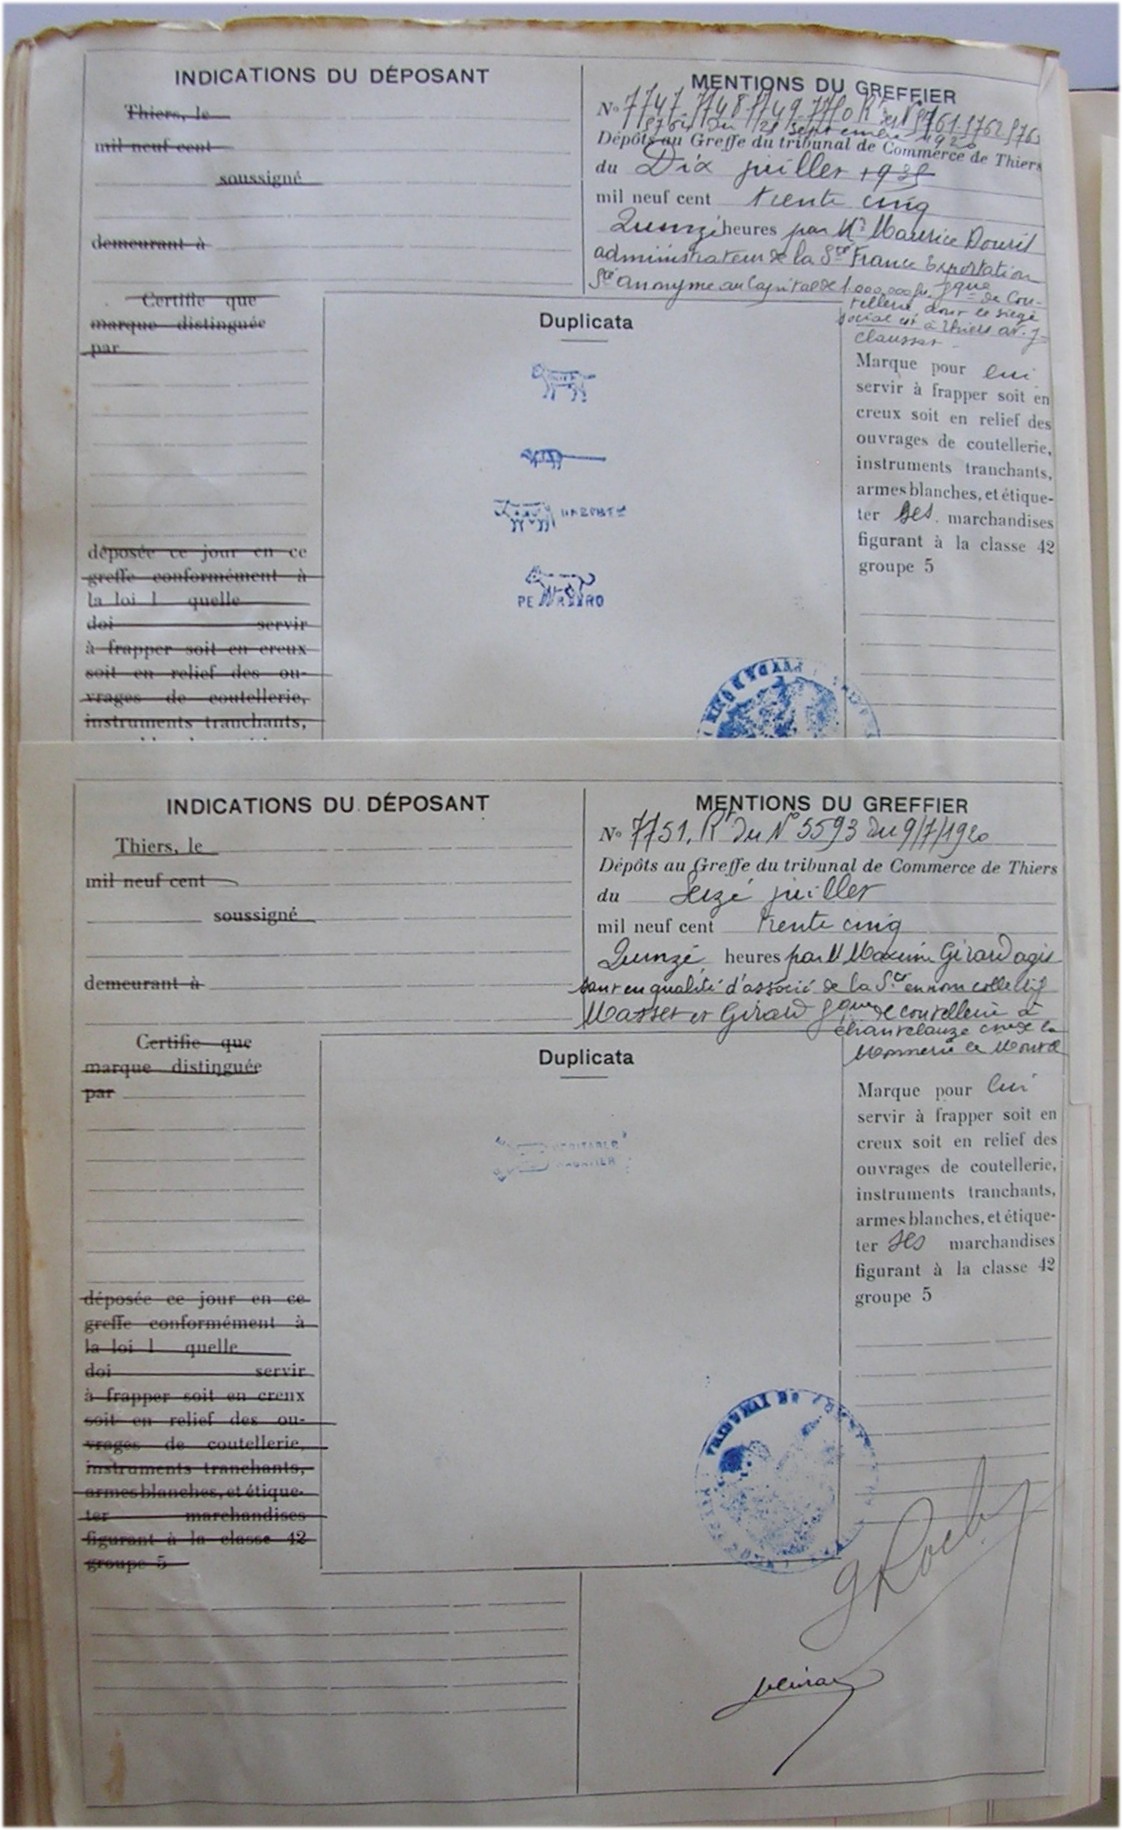 INDICATIONS DU DÉPOSANT
Thiers, le
mil neuf cent
soussigné
demeurant à
Certifie que
marque distinguée
par
déposée ce jour en ce
greffe conformément à
la loi l quelle
doi servir
à frapper soit en creux
soit en relief des ou-
vrages de coutellerie,
instruments tranchants,
MENTIONS DU GREFFIER
No 7747. 7748. 7749. 7750
du 28 septembre 1920
Dépôts au Greffe du tribunal de Commerce de Thiers
du Dix juillet 1935
mil neuf cent trente cinq
Quinze heures par Mr Maurice Douris
administrateur de la Sté France Exportation
Sté anonyme au Capital de 1.000.000 fr. fque de Cou-
tellerie dont le siège
social est à Thiers av.
Duplicata
PE RRO
Marque pour lui
servir à frapper soit en
creux soit en relief des
ouvrages de coutellerie,
instruments tranchants,
armes blanches, et étique-
ter ses marchandises
figurant à la classe 42
groupe 5
INDICATIONS DU DÉPOSANT
Thiers, le
mil neuf cent
soussigné
demeurant à
Certifie que
marque distinguée
par
déposée ce jour en ce
greffe conformément à
la loi l quelle
doi servir
à frapper soit en creux
soit en relief des ou-
vrages de coutellerie,
instruments tranchants,
armes blanches, et étique-
ter marchandises
figurant à la classe 42
groupe 5
MENTIONS DU GREFFIER
No 7751. Rt du No 5593 du 9/7/1920
Dépôts au Greffe du tribunal de Commerce de Thiers
du Seize juillet
mil neuf cent trente cinq
Quinze heures par M Maxime Girard agis
sant en qualité d'associé de la Sté en nom collectif
Masset et Girard fque de coutellerie à
Chantelauze cne de la
Monnerie le Montel
Duplicata
VERITABLE
Marque pour lui
servir à frapper soit en
creux soit en relief des
ouvrages de coutellerie,
instruments tranchants,
armes blanches, et étique-
ter ses marchandises
figurant à la classe 42
groupe 5
TRIBUNAL DE